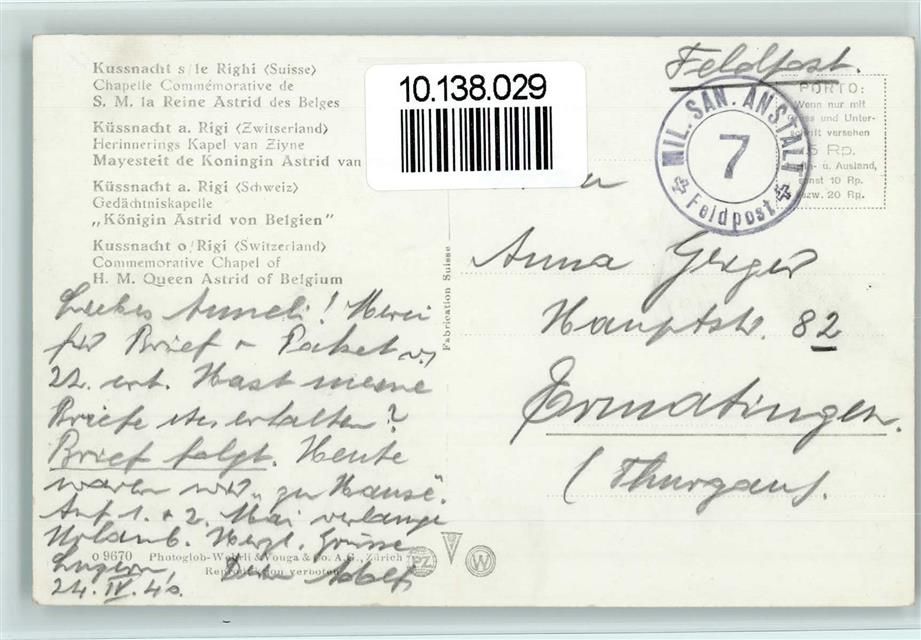 Kussnacht s/le Righi (Suisse)
Chapelle Commémorative de
S. M. la Reine Astrid des Belges
Küssnacht a. Rigi (Zwitserland)
Herinnerings Kapel van Ziyne
Mayesteit de Koningin Astrid van
Küssnacht a. Rigi (Schweiz)
Gedächtniskapelle
„Königin Astrid von Belgien"
Kussnacht o/Rigi (Switzerland)
Commemorative Chapel of
H. M. Queen Astrid of Belgium
Liebes Anneli! Merci
für Brief + Paket v.
22. erh. Hast meine
Briefe erhalten?
Brief folgt. Heute
waren wir „zu Hause".
Auf 1. + 2. Mai verlange
Urlaub. Herzl. Grüsse
Luzern, Dein Adolf
24. IV. 40.
o 9670 Photoglob-Wehrli & Vouga & Co. A.G., Zürich
Reproduktion verboten
PZ
V
W
Fabrication Suisse
10.138.029
Feldpost.
MIL. SAN. ANSTALT
7
Feldpost
PORTO:
Wenn nur mit
Gruss und Unter-
schrift versehen
5 Rp.
In- u. Ausland,
sonst 10 Rp.
bzw. 20 Rp.
Anna Geiger
Hauptstr. 82
Ermatingen.
(Thurgau).